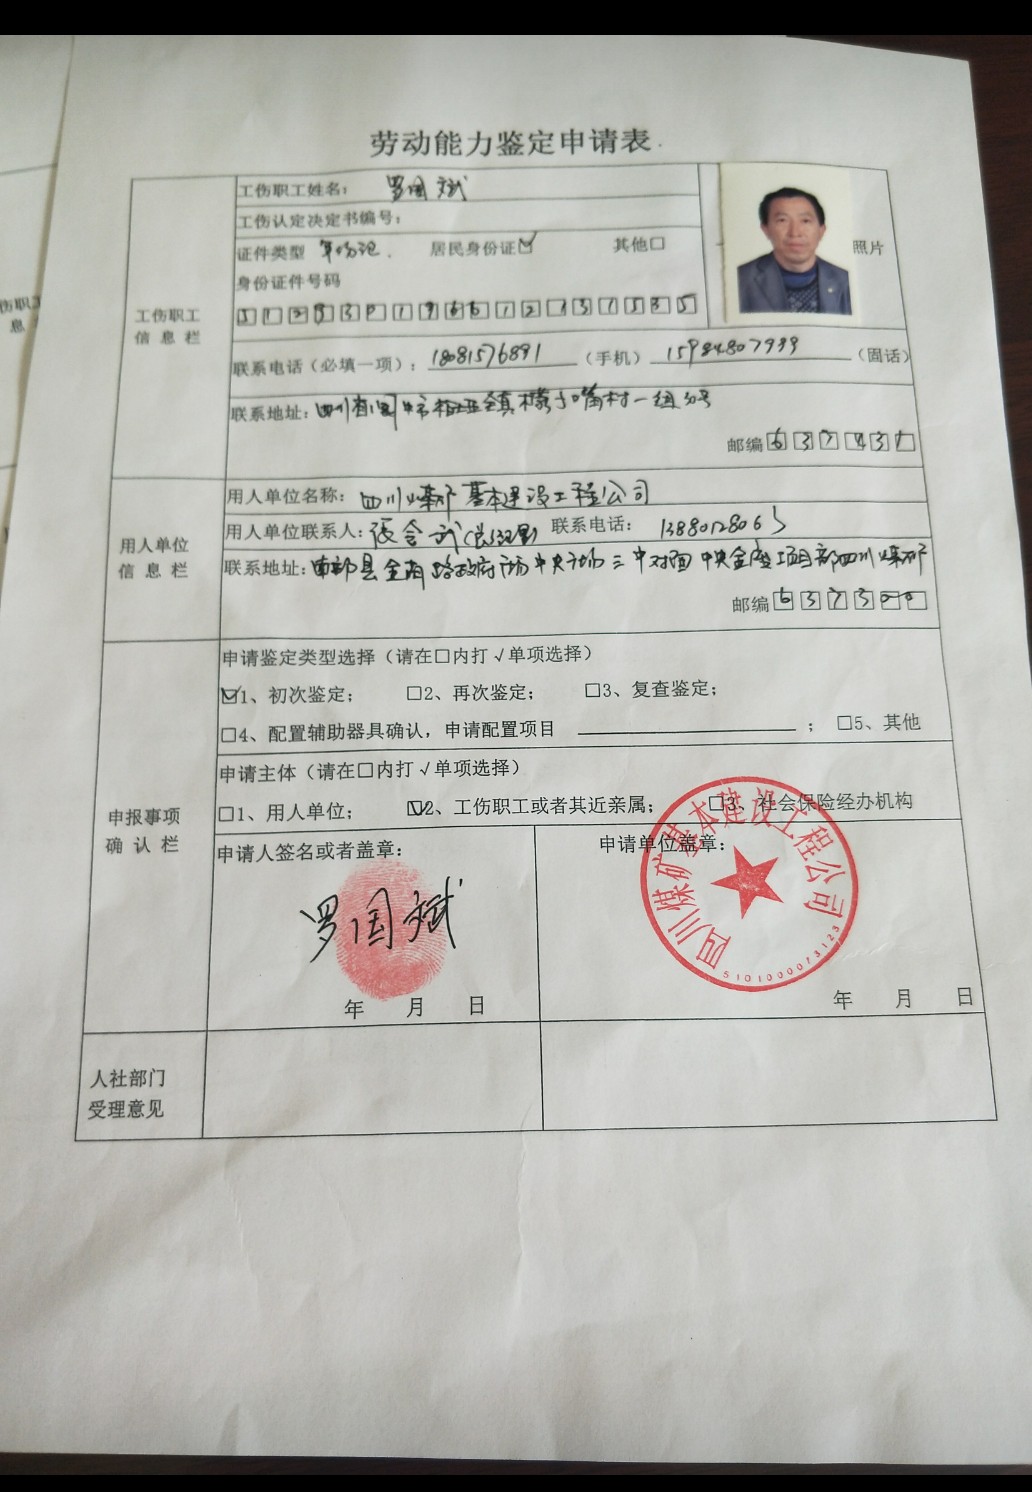 劳动能力鉴定申请表
工伤职工
信息栏
工伤职工姓名： 罗国斌
工伤认定决定书编号：
证件类型 居民身份证☑ 其他□
照片
身份证件号码
联系电话（必填一项）：18081576891（手机）15984807999（固话）
联系地址：四川省阆中市 镇 村一组
邮编637431
用人单位
信息栏
用人单位名称：四川煤矿基本建设工程公司
用人单位联系人：张 武 联系电话：13880128065
联系地址：南部县金 路政府 中央 三中对面中央金座项目部四川煤矿
邮编637300
申报事项
确认栏
申请鉴定类型选择（请在□内打√单项选择）
☑1、初次鉴定； □2、再次鉴定； □3、复查鉴定；
□4、配置辅助器具确认，申请配置项目 ； □5、其他
申请主体（请在□内打√单项选择）
□1、用人单位； ☑2、工伤职工或者其近亲属； □3、社会保险经办机构
申请人签名或者盖章： 申请单位盖章：
罗国斌
四川煤矿基本建设工程公司
5101000073123
年 月 日 年 月 日
人社部门
受理意见
伤职工
息